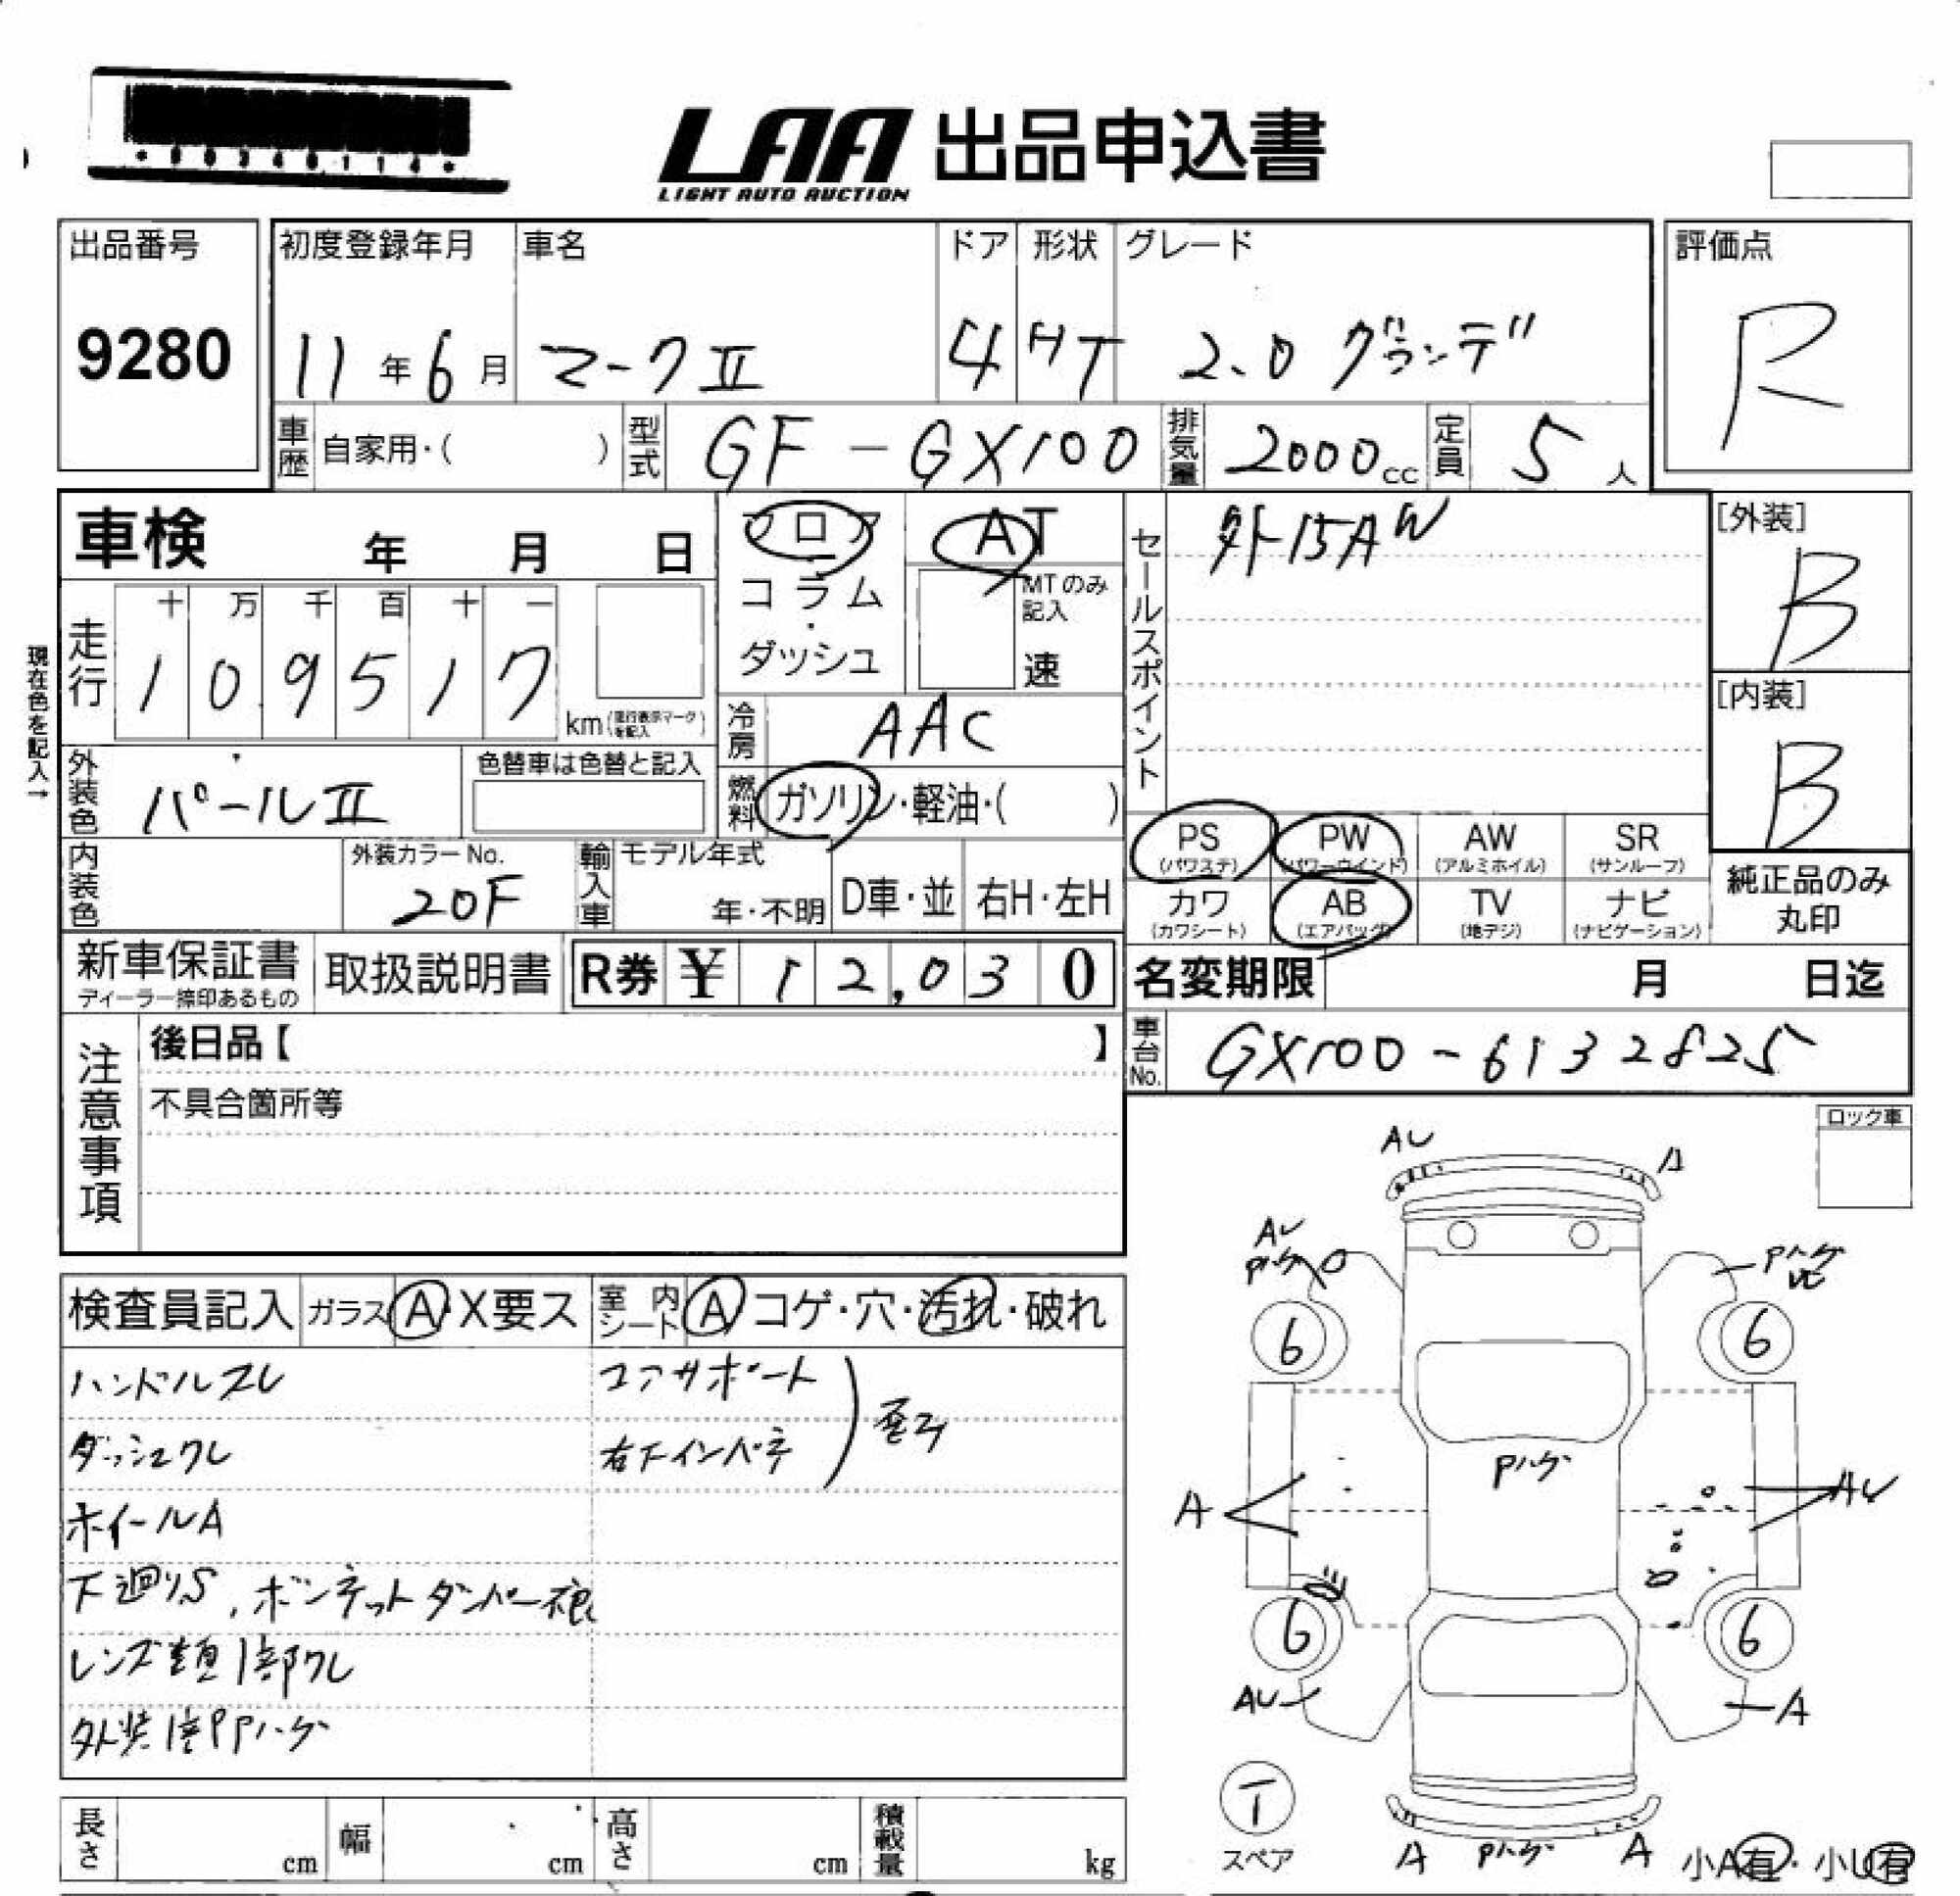 LAA 出品申込書
LIGHT AUTO AUCTION
出品番号
9280
初度登録年月
11年6月
車名
マークⅡ
ドア
4
形状
HT
グレード
2.0 グランデ
評価点
R
車歴 自家用・( )
型式 GF-GX100
排気量 2000cc
定員 5人
車検 年 月 日
フロア・コラム・ダッシュ
AT
MTのみ記入
速
セールスポイント
外15AW
[外装]
B
[内装]
B
現在色を記入→
走行
十 万 千 百 十 一
1 0 9 5 1 7
km(走行表示マークを記入)
冷房 AAC
外装色 パールⅡ
色替車は色替と記入
燃料 ガソリン・軽油・( )
PS (パワステ)
PW (パワーウインド)
AW (アルミホイル)
SR (サンルーフ)
カワ (カワシート)
AB (エアバッグ)
TV (地デジ)
ナビ (ナビゲーション)
純正品のみ
丸印
内装色
外装カラーNo.
20F
輸入車
モデル年式
年・不明
D車・並
右H・左H
新車保証書
ディーラー捺印あるもの
取扱説明書
R券 ¥ 12,030
名変期限 月 日迄
車台No. GX100-6132825
注意事項
後日品【 】
不具合箇所等
ロック車
検査員記入
ガラス A・X要ス
室内シート A コゲ・穴・汚れ・破れ
ハンドルスレ
コアサポート
ダッシュワレ
右下インパネ
歪み
ホイールA
下廻りS、ボンネットダンパー
レンズ類1部ワレ
外装 Pハゲ
AU
A
AU
Pハゲ
Pハゲ
6
6
Pハゲ
A
AU
6
6
AU
A
T
スペア
A
Pハゲ
A
小A有・小U有
長さ cm
幅 cm
高さ cm
積載量 kg